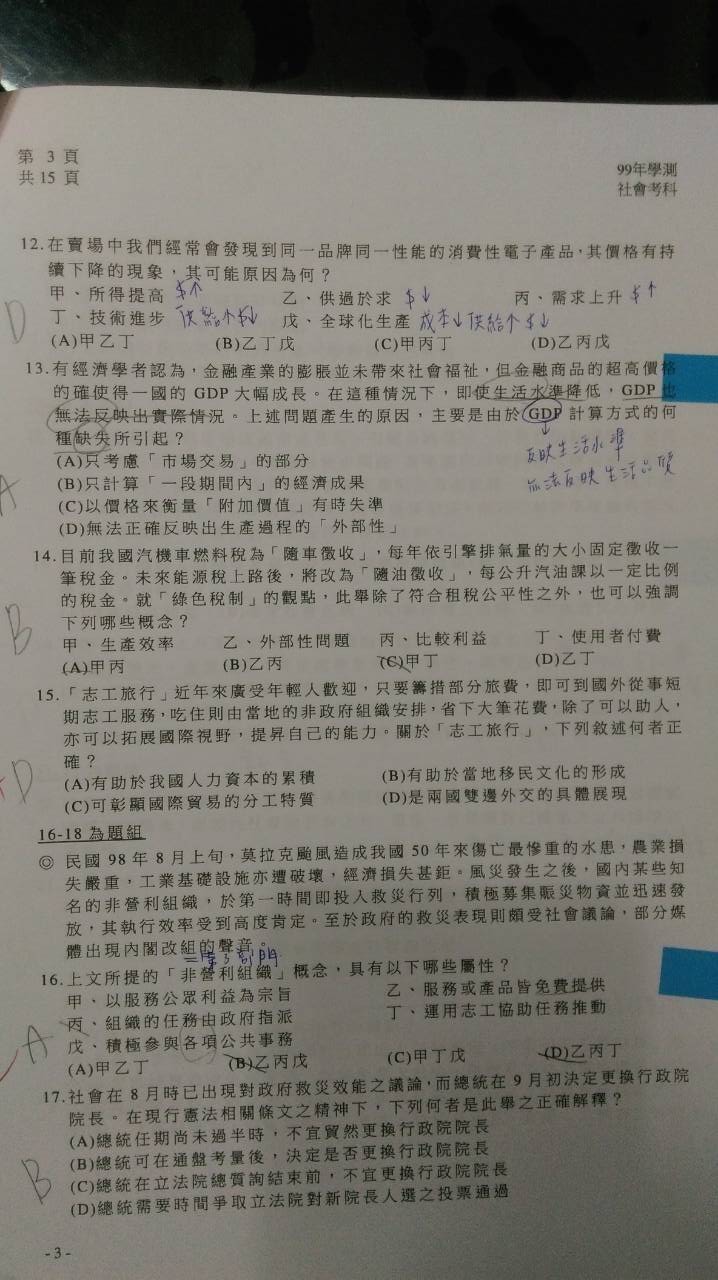 第 3 頁
共 15 頁
99年學測
社會考科
12.在賣場中我們經常會發現到同一品牌同一性能的消費性電子產品，其價格有持
續下降的現象，其可能原因為何？
甲、所得提高 $↑ 乙、供過於求 $↓ 丙、需求上升 $↑
丁、技術進步 供給↑ $↓ 戊、全球化生產 成本↓供給↑ $↓
D
(A)甲乙丁 (B)乙丁戊 (C)甲丙丁 (D)乙丙戊
13.有經濟學者認為，金融產業的膨脹並未帶來社會福祉，但金融商品的超高價格
的確使得一國的 GDP 大幅成長。在這種情況下，即使生活水準降低，GDP 也
無法反映出實際情況。上述問題產生的原因，主要是由於 GDP 計算方式的何
種缺失所引起？
反映生活水準
無法反映生活品質
(A)只考慮「市場交易」的部分
A
(B)只計算「一段期間內」的經濟成果
(C)以價格來衡量「附加價值」有時失準
(D)無法正確反映出生產過程的「外部性」
14.目前我國汽機車燃料稅為「隨車徵收」，每年依引擎排氣量的大小固定徵收一
筆稅金。未來能源稅上路後，將改為「隨油徵收」，每公升汽油課以一定比例
的稅金。就「綠色稅制」的觀點，此舉除了符合租稅公平性之外，也可以強調
下列哪些概念？
B
甲、生產效率 乙、外部性問題 丙、比較利益 丁、使用者付費
(A)甲丙 (B)乙丙 (C)甲丁 (D)乙丁
15.「志工旅行」近年來廣受年輕人歡迎，只要籌措部分旅費，即可到國外從事短
期志工服務，吃住則由當地的非政府組織安排，省下大筆花費，除了可以助人，
亦可以拓展國際視野，提昇自己的能力。關於「志工旅行」，下列敘述何者正
確？
D
(A)有助於我國人力資本的累積 (B)有助於當地移民文化的形成
(C)可彰顯國際貿易的分工特質 (D)是兩國雙邊外交的具體展現
16-18 為題組
◎ 民國 98 年 8 月上旬，莫拉克颱風造成我國 50 年來傷亡最慘重的水患，農業損
失嚴重，工業基礎設施亦遭破壞，經濟損失甚鉅。風災發生之後，國內某些知
名的非營利組織，於第一時間即投入救災行列，積極募集賑災物資並迅速發
放，其執行效率受到高度肯定。至於政府的救災表現則頗受社會議論，部分媒
體出現內閣改組的聲音。
=第3部門
16.上文所提的「非營利組織」概念，具有以下哪些屬性？
甲、以服務公眾利益為宗旨 乙、服務或產品皆免費提供
丙、組織的任務由政府指派 丁、運用志工協助任務推動
戊、積極參與各項公共事務
A
(A)甲乙丁 (B)乙丙戊 (C)甲丁戊 (D)乙丙丁
17.社會在 8 月時已出現對政府救災效能之議論，而總統在 9 月初決定更換行政院
院長。在現行憲法相關條文之精神下，下列何者是此舉之正確解釋？
(A)總統任期尚未過半時，不宜貿然更換行政院院長
(B)總統可在通盤考量後，決定是否更換行政院院長
B
(C)總統在立法院總質詢結束前，不宜更換行政院院長
(D)總統需要時間爭取立法院對新院長人選之投票通過
- 3 -